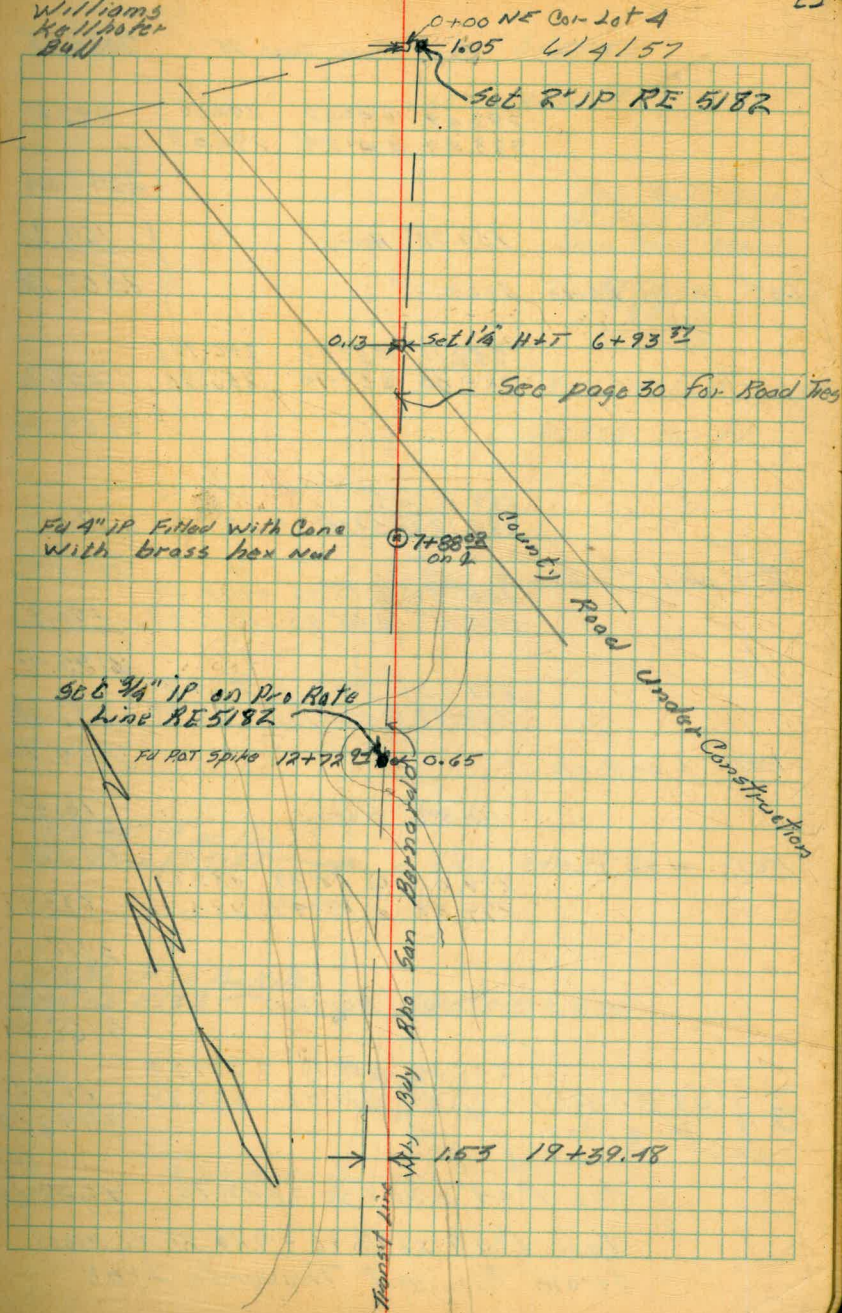 Williams
Kellhofer
Bull
0+00 NE Cor Lot 4
1.05 6/4/57
Set 2" IP RE 5182
0.13 Set 1¼" H&T 6+93 37
See page 30 for Road Ties
Fd 4" IP Filled with Conc
with brass hex nut
7+88 08
on L
County Road Under Construction
Set ¾" IP on Pro Rate
Line RE 5182
Fd POT Spike 12+72 0.65
Wly Bdy Rho San Bernardo
1.53 19+39.48
Transit Line